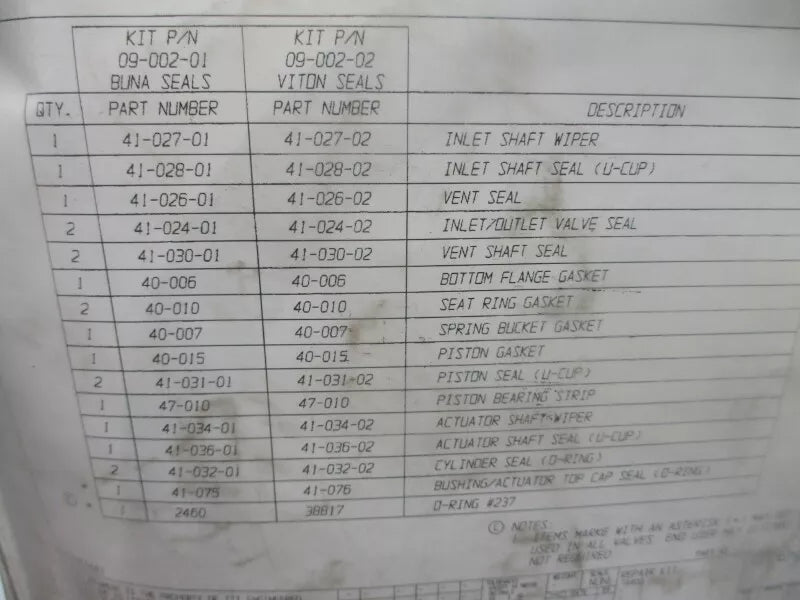 KIT P/N KIT P/N
09-002-01 09-002-02
BUNA SEALS VITON SEALS
QTY. PART NUMBER PART NUMBER DESCRIPTION
1 41-027-01 41-027-02 INLET SHAFT WIPER
1 41-028-01 41-028-02 INLET SHAFT SEAL (U-CUP)
1 41-026-01 41-026-02 VENT SEAL
2 41-024-01 41-024-02 INLET/OUTLET VALVE SEAL
2 41-030-01 41-030-02 VENT SHAFT SEAL
1 40-006 40-006 BOTTOM FLANGE GASKET
2 40-010 40-010 SEAT RING GASKET
1 40-007 40-007 SPRING BUCKET GASKET
1 40-015 40-015 PISTON GASKET
2 41-031-01 41-031-02 PISTON SEAL (U-CUP)
1 47-010 47-010 PISTON BEARING STRIP
1 41-034-01 41-034-02 ACTUATOR SHAFT WIPER
1 41-036-01 41-036-02 ACTUATOR SHAFT SEAL (U-CUP)
2 41-032-01 41-032-02 CYLINDER SEAL (O-RING)
1 41-075 41-076 BUSHING/ACTUATOR TOP CAP SEAL (O-RING)
1 2460 38817 O-RING #237
NOTES:
1. ITEMS MARKE WITH AN ASTERISK
USED IN ALL VALVES. END USER
NOT REQUIRED
REPAIR KIT